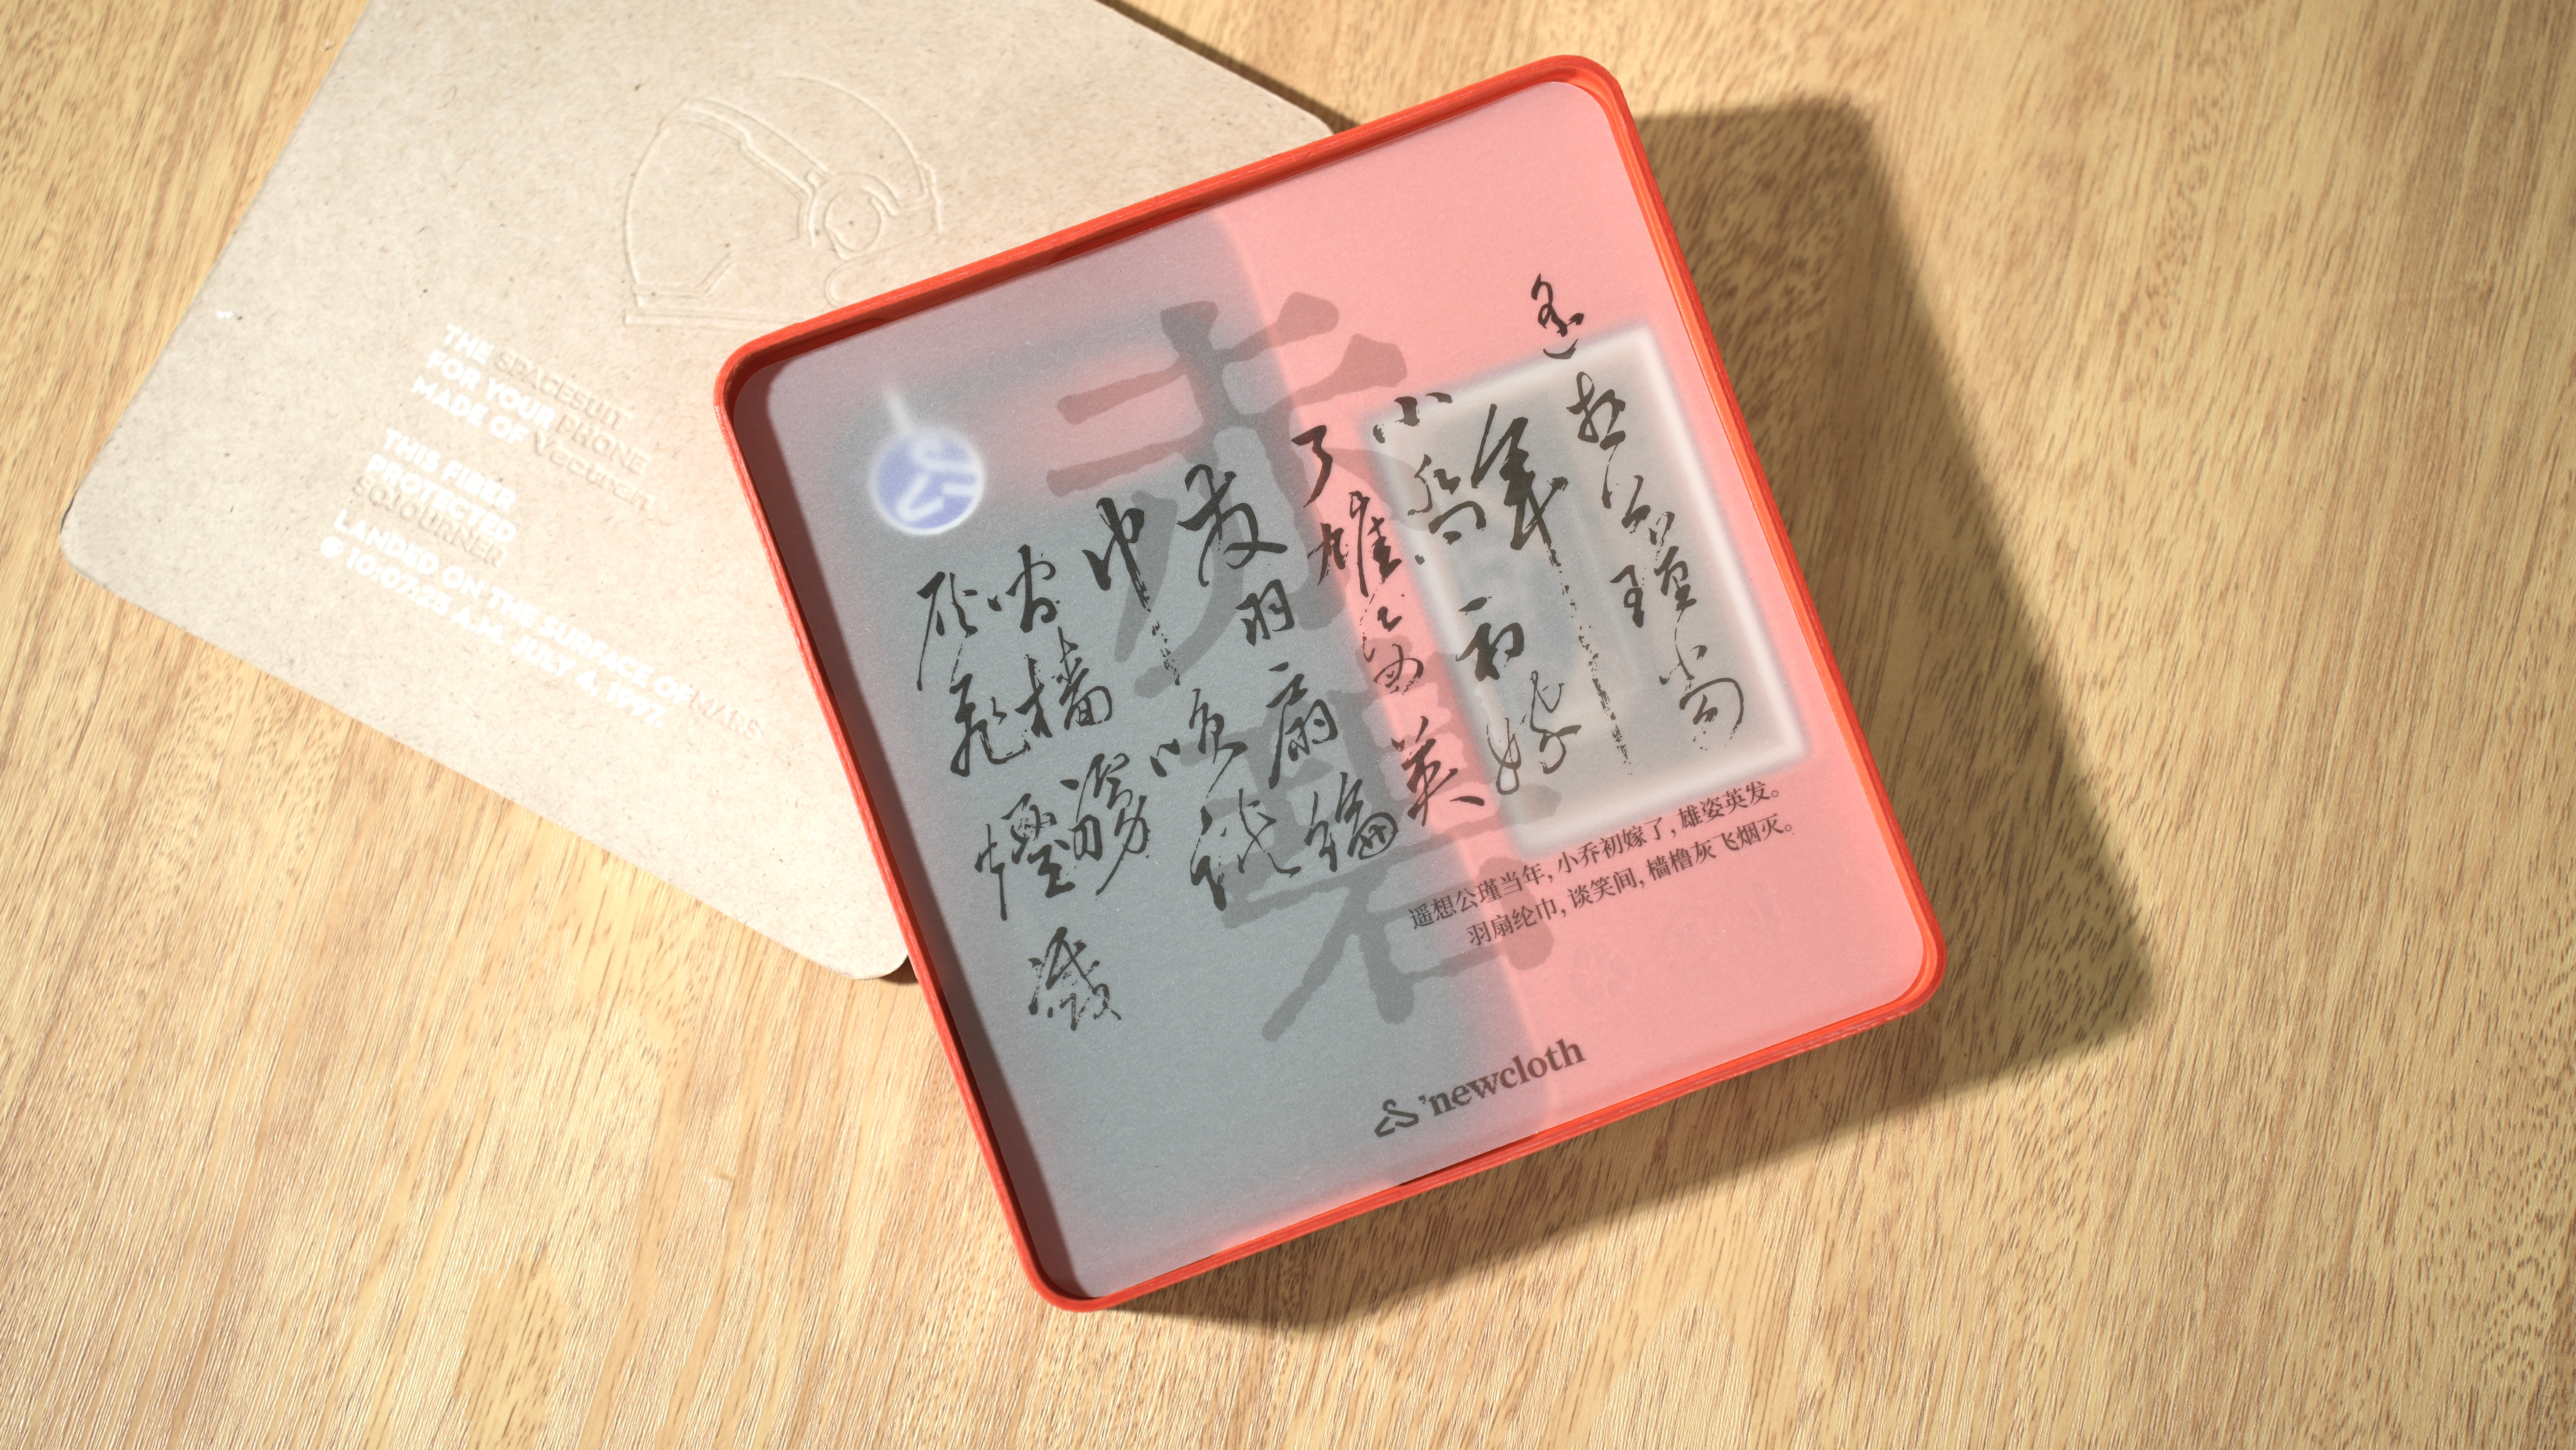 THE SPACESUIT
FOR YOUR PHONE
MADE OF Vectran
THIS FIBER
PROTECTED
SOJOURNER
LANDED ON THE SURFACE OF MARS
@ 10:07:25 A.M. JULY 4, 1997.
遥想公瑾當
年小喬初嫁
了雄姿英
發羽扇綸
巾笑談
間檣
灰飛煙滅
遥想公瑾当年, 小乔初嫁了, 雄姿英发。
羽扇纶巾, 谈笑间, 樯橹灰飞烟灭。
'newcloth